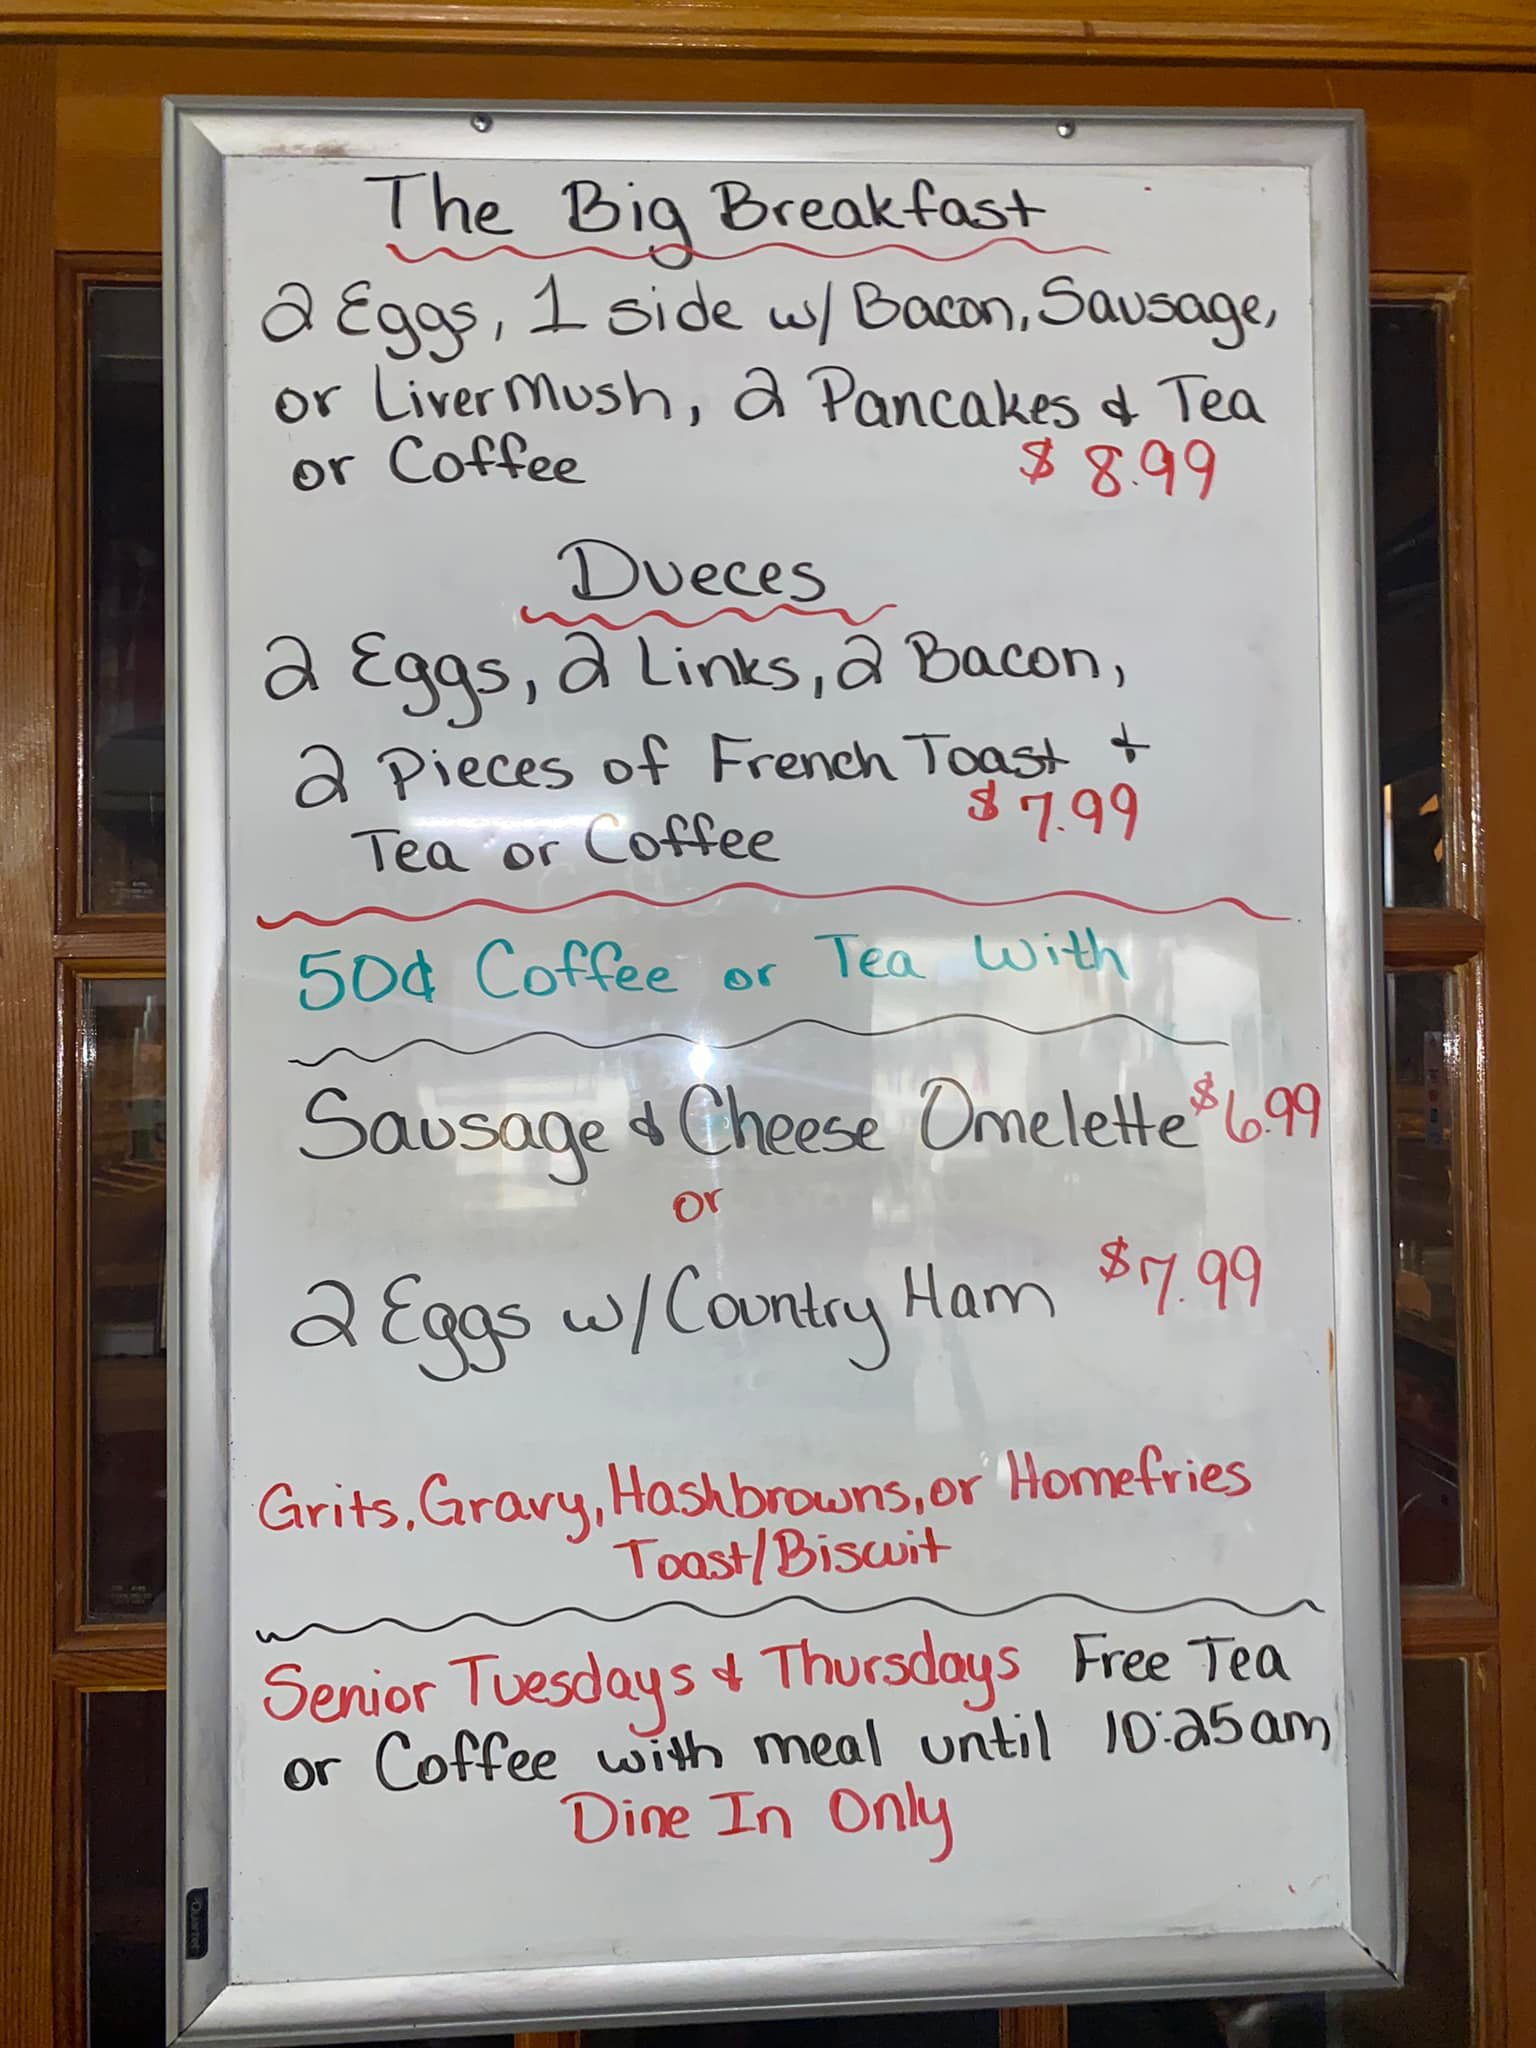 The Big Breakfast
2 Eggs, 1 side w/ Bacon, Sausage,
or Liver Mush, 2 Pancakes & Tea
or Coffee $8.99
Dueces
2 Eggs, 2 Links, 2 Bacon,
2 Pieces of French Toast +
Tea or Coffee $7.99
50¢ Coffee or Tea With
Sausage & Cheese Omelette $6.99
or
2 Eggs w/ Country Ham $7.99
Grits, Gravy, Hashbrowns, or Homefries
Toast/Biscuit
Senior Tuesdays & Thursdays Free Tea
or Coffee with meal until 10:25am
Dine In Only
Quartet